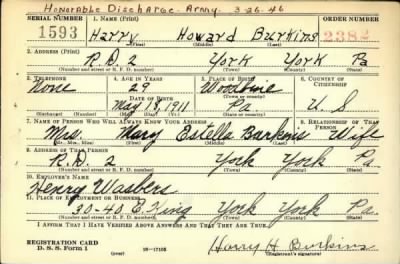 Honorable Discharge Army 3-26-46
SERIAL NUMBER 1. NAME (Print) ORDER NUMBER
1593 Harry Howard Burkins 2382
(First) (Middle) (Last)
2. ADDRESS (Print)
R.D. 2 York York Pa
(Number and street or R. F. D. number) (Town) (County) (State)
3. TELEPHONE 4. AGE IN YEARS 5. PLACE OF BIRTH 6. COUNTRY OF CITIZENSHIP
None 29 Woodbine
DATE OF BIRTH (Town or county)
May 18, 1911 Pa. U.S
(Exchange) (Number) (Mo.) (Day) (Yr.) (State or country)
7. NAME OF PERSON WHO WILL ALWAYS KNOW YOUR ADDRESS 8. RELATIONSHIP OF THAT PERSON
Mrs. Mary Estella Burkins Wife
(Mr., Mrs., Miss) (First) (Middle) (Last)
9. ADDRESS OF THAT PERSON
R.D. 2 York York Pa
(Number and street or R. F. D. number) (Town) (County) (State)
10. EMPLOYER'S NAME
Henry
11. PLACE OF EMPLOYMENT OR BUSINESS
30-40 E. King York York Pa.
(Number and street or R. F. D. number) (Town) (County) (State)
I AFFIRM THAT I HAVE VERIFIED ABOVE ANSWERS AND THAT THEY ARE TRUE.
REGISTRATION CARD
D. S. S. Form 1 (over) 16-17105 Harry H Burkins
(Registrant's signature)